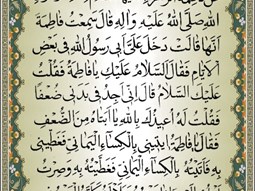 صَلَّى اللهُ عَلَيْهِ وَآلِهِ قَالَ سَمِعْتُ فَاطِمَةَ
أَنَّهَا قَالَتْ دَخَلَ عَلَيَّ أَبِي رَسُولُ اللهِ فِي بَعْضِ
الْأَيَّامِ فَقَالَ السَّلَامُ عَلَيْكِ يَا فَاطِمَةُ فَقُلْتُ
عَلَيْكَ السَّلَامُ قَالَ إِنِّي أَجِدُ فِي بَدَنِي ضُعْفًا
فَقُلْتُ لَهُ أُعِيذُكَ بِاللهِ يَا أَبَتَاهُ مِنَ الضُّعْفِ
فَقَالَ يَا فَاطِمَةُ إِيتِينِي بِالْكِسَاءِ الْيَمَانِي فَغَطِّينِي
بِهِ فَأَتَيْتُهُ بِالْكِسَاءِ الْيَمَانِي فَغَطَّيْتُهُ بِهِ وَصِرْتُ